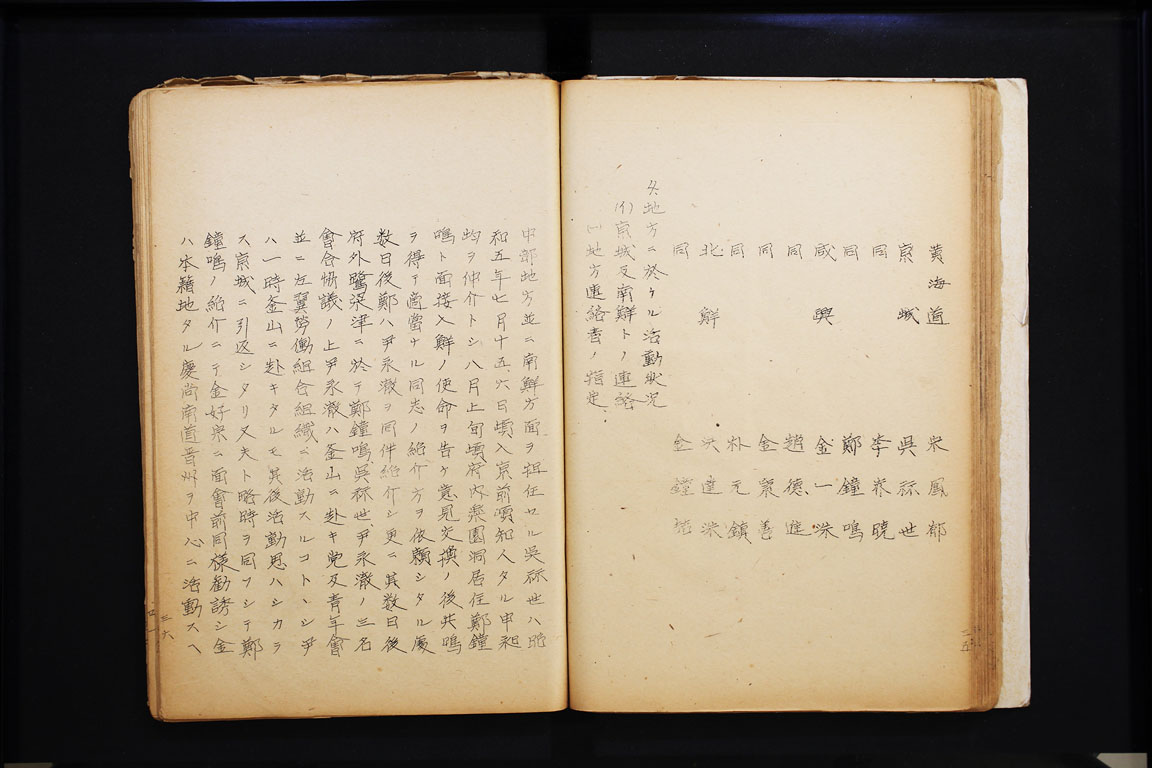 黄海道　宋鳳郁
京城　呉祘世
同　李崇曉
同　鄭鐘鳴
咸興　金一洙
同　趙德進
同　金聚善
同　朴元鎮
北鮮　達洙
同　金鐘
各地方ニ於ケル活動状況
(イ)京城及南鮮トノ連絡
(一)地方連絡者ノ指定
二五
中部地方並ニ南鮮方面ヲ担任セル呉祘世ハ昭
和五年七月十五六日頃入京前頃知人タル申昶
均ヲ仲介トシ八月上旬頃府内楽園洞居住鄭鐘
鳴ト面接入鮮ノ使命ヲ告ケ意見交換ノ後共鳴
ヲ得テ適當ナル同志ノ紹介方ヲ依頼シタル處
数日後鄭ハ尹永澈ヲ同伴紹介シ更ニ其数日後
府外鷺梁津ニ於テ鄭鐘鳴呉祘世尹永澈ノ三名
會合協議ノ上尹永澈ハ釜山ニ赴キ党及青年會
並ニ左翼勞働組合組織ニ活動スルコトヽシ尹
ハ一時釜山ニ赴キタルモ其後活動思ハシカラ
ス京城ニ引返シタリ又夫ト略時ヲ同フシテ鄭
鐘鳴ノ紹介ニテ金好宗ニ面會前同様勧誘シ金
ハ本籍地タル慶尚南道晋州ヲ中心ニ活動スヘ
三六